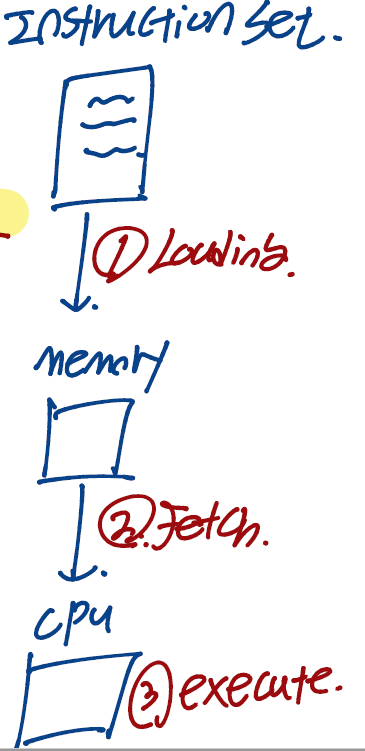 Instruction Set.
① Loading.
memory
② Fetch.
cpu
③ execute.